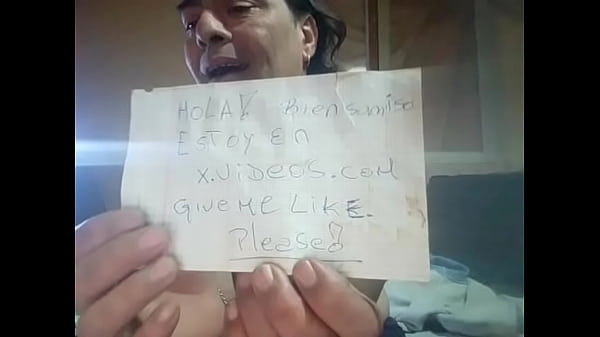 HOLA! Biensumiso
ESTOY En
x.viDeOS.COM
GiveMe LiKE.
Please!